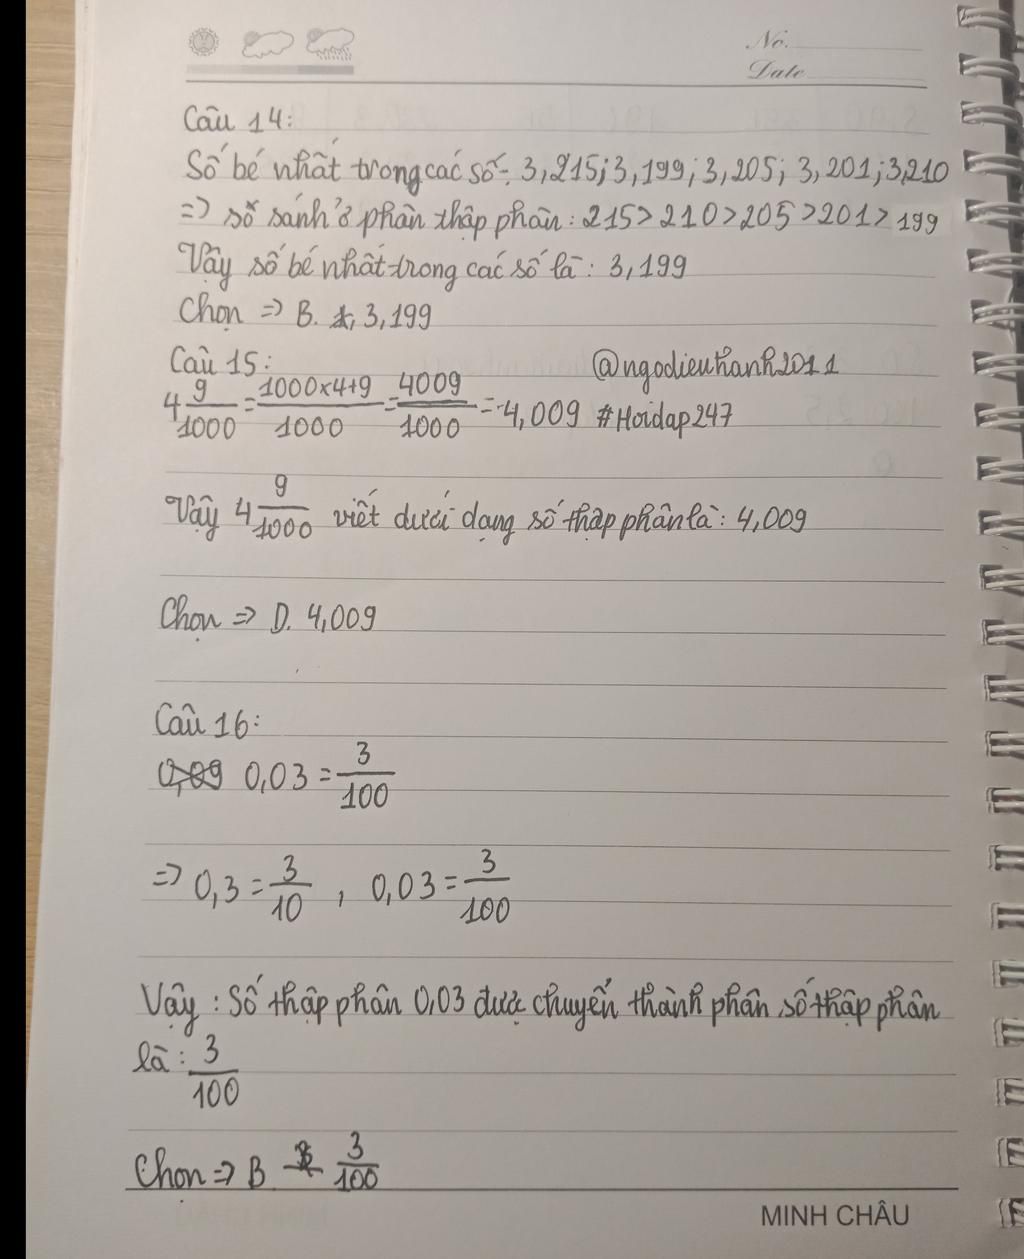 No.
Date
Câu 14:
Số bé nhất trong các số: 3,215; 3,199; 3,205; 3,201; 3,210
=> so sánh ở phần thập phân: 215 > 210 > 205 > 201 > 199
Vậy số bé nhất trong các số là: 3,199
Chọn => B. 3,199
Câu 15: @ngodieuhanh2011
4 9/1000 = 1000x4+9/1000 = 4009/1000 = 4,009 #Hoidap247
Vậy 4 9/1000 viết dưới dạng số thập phân là: 4,009
Chọn => D. 4,009
Câu 16:
0,09 0,03 = 3/100
=> 0,3 = 3/10 , 0,03 = 3/100
Vậy : Số thập phân 0,03 được chuyển thành phân số thập phân
là: 3/100
Chọn => B 3/100
MINH CHÂU